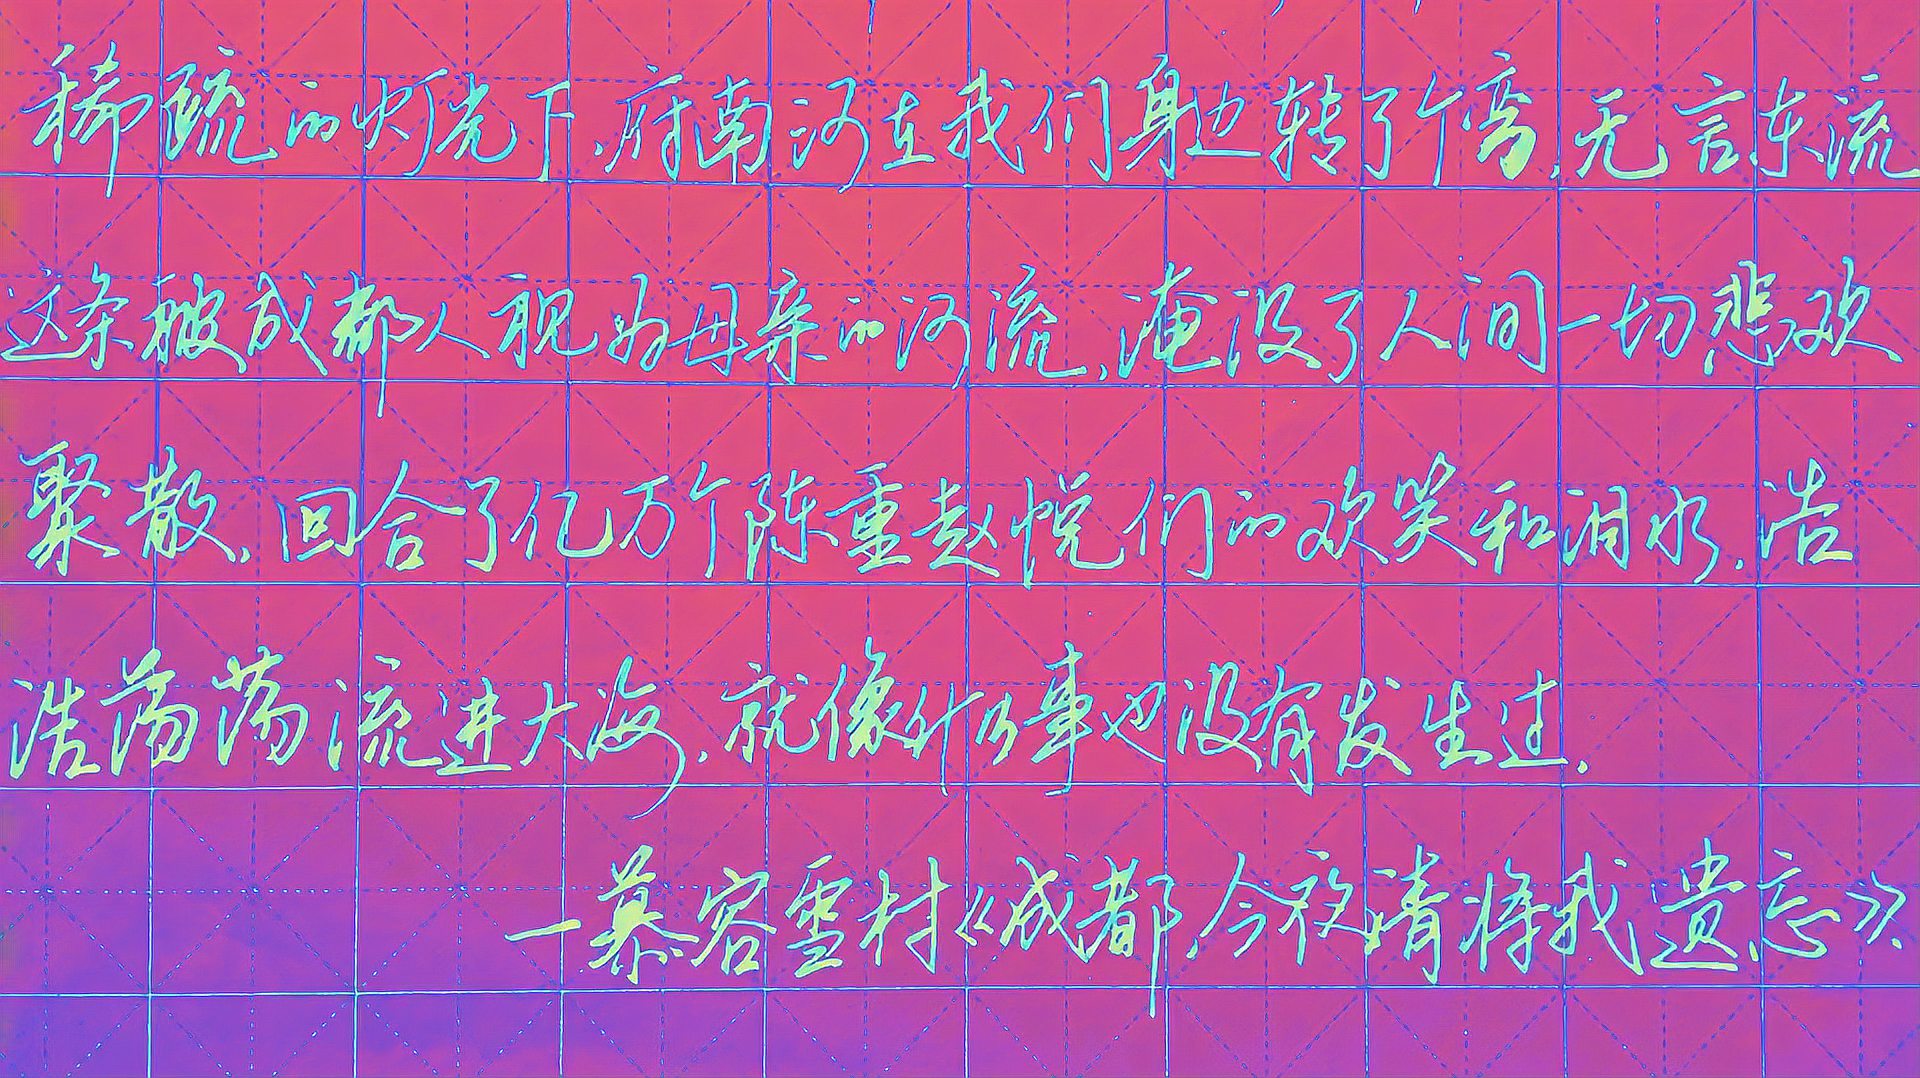 稀疏的灯光下,府南河在我们身边转了个弯,无言东流
这条被成都人视为母亲的河流,淹没了人间一切悲欢
聚散,回合了亿万个陈重赵悦们的欢笑和泪水,浩
浩荡荡流进大海,就像什么事也没有发生过.
—慕容雪村《成都,今夜请将我遗忘》